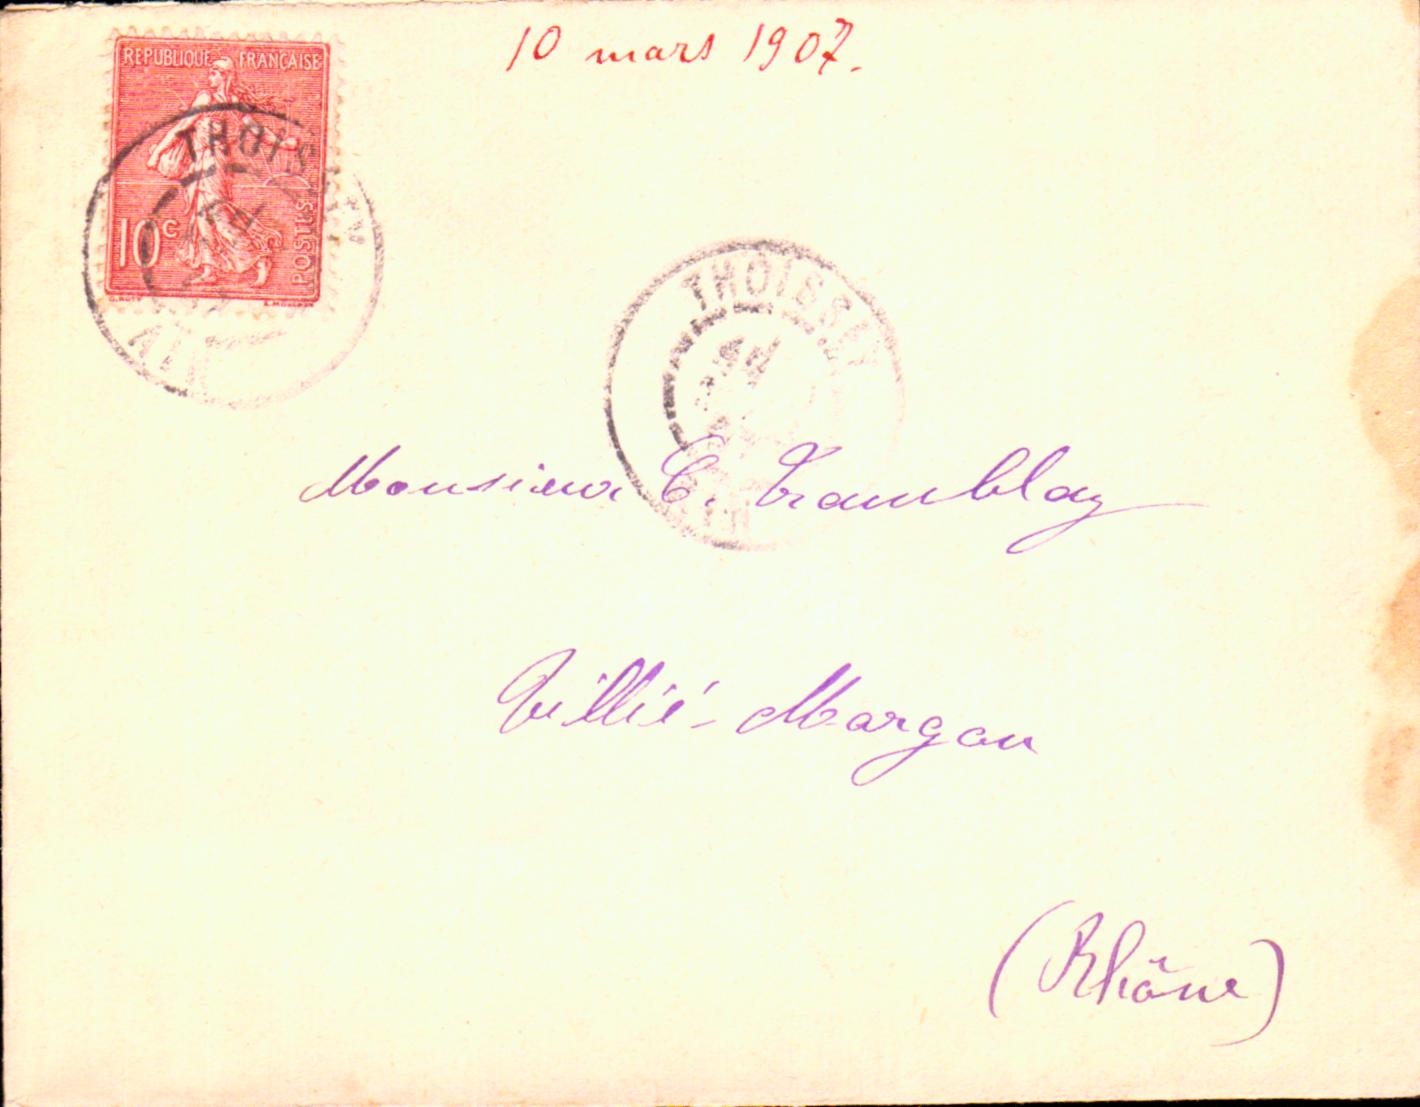 10 mars 1907.
REPUBLIQUE FRANÇAISE
10 c
POSTES
THOISSEY
AIN
THOISSEY
AIN
Monsieur C. Tramblay
Villié-Morgon
(Rhône)